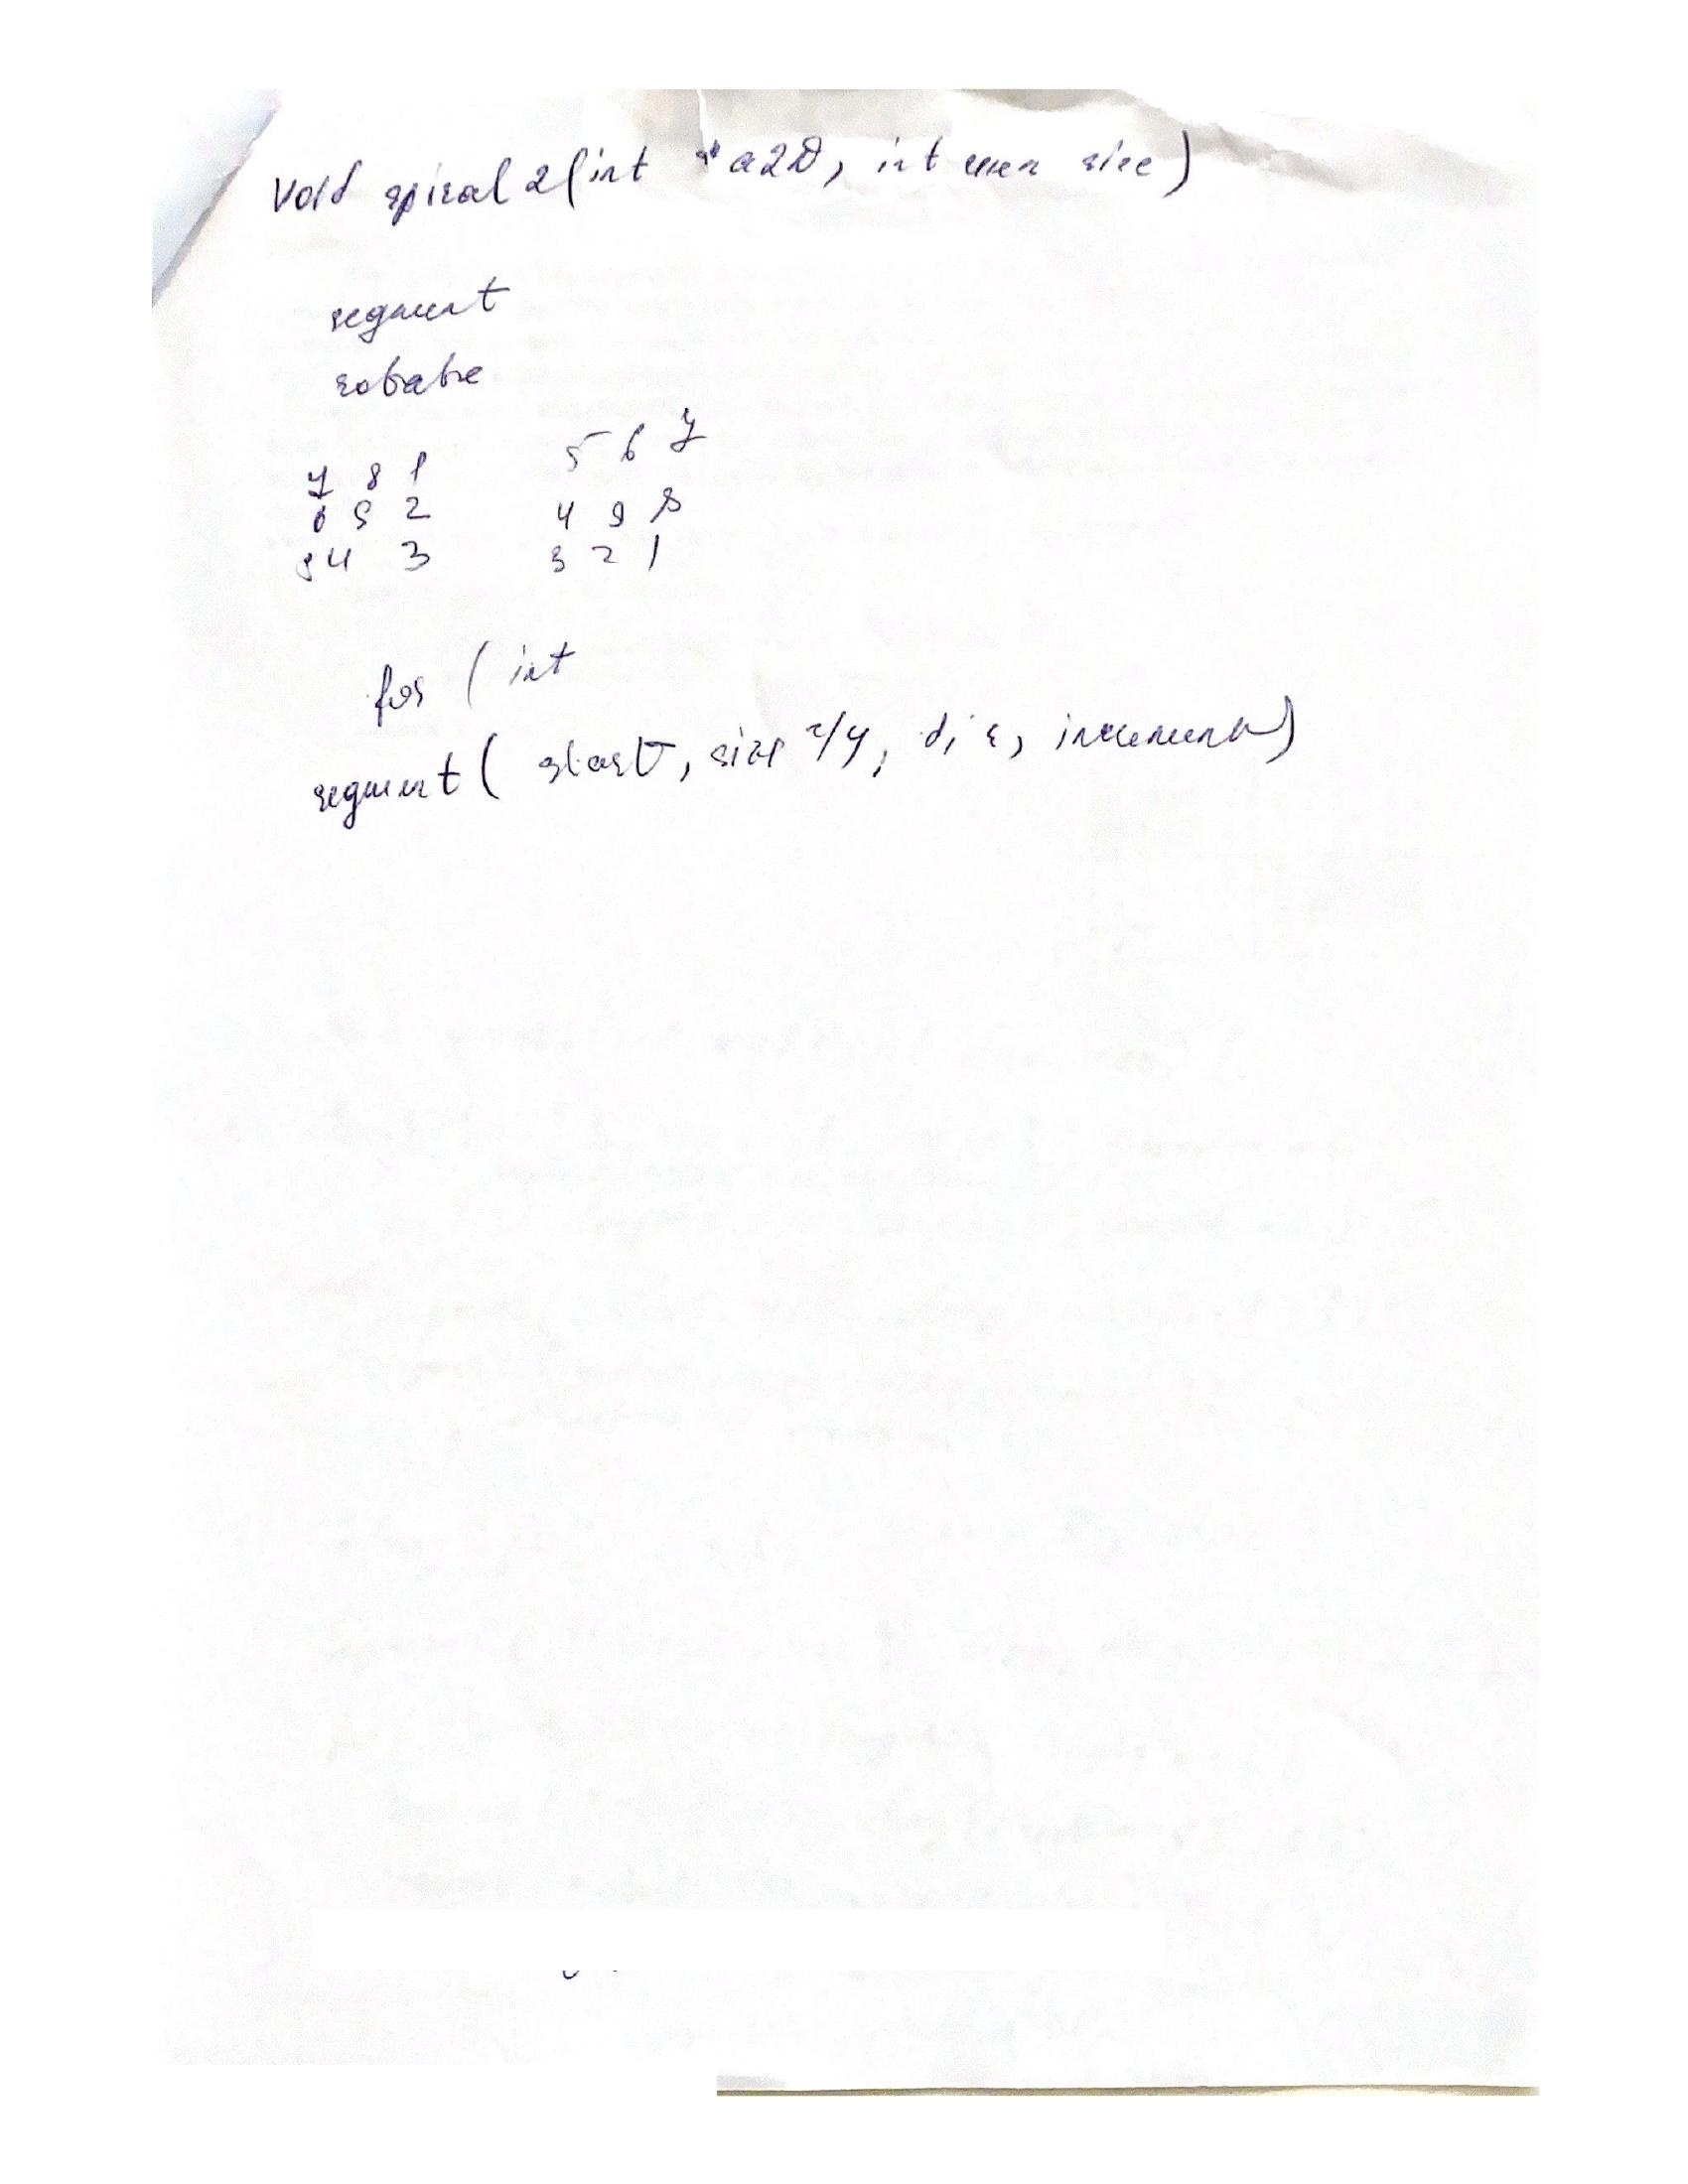 void spiral2(int *a2D, int size)
segment
rotate
7 8 1
6 9 2
5 4 3
5 6 7
4 9 8
3 2 1
for (int
segment( start, size 2/4, dir, increment)